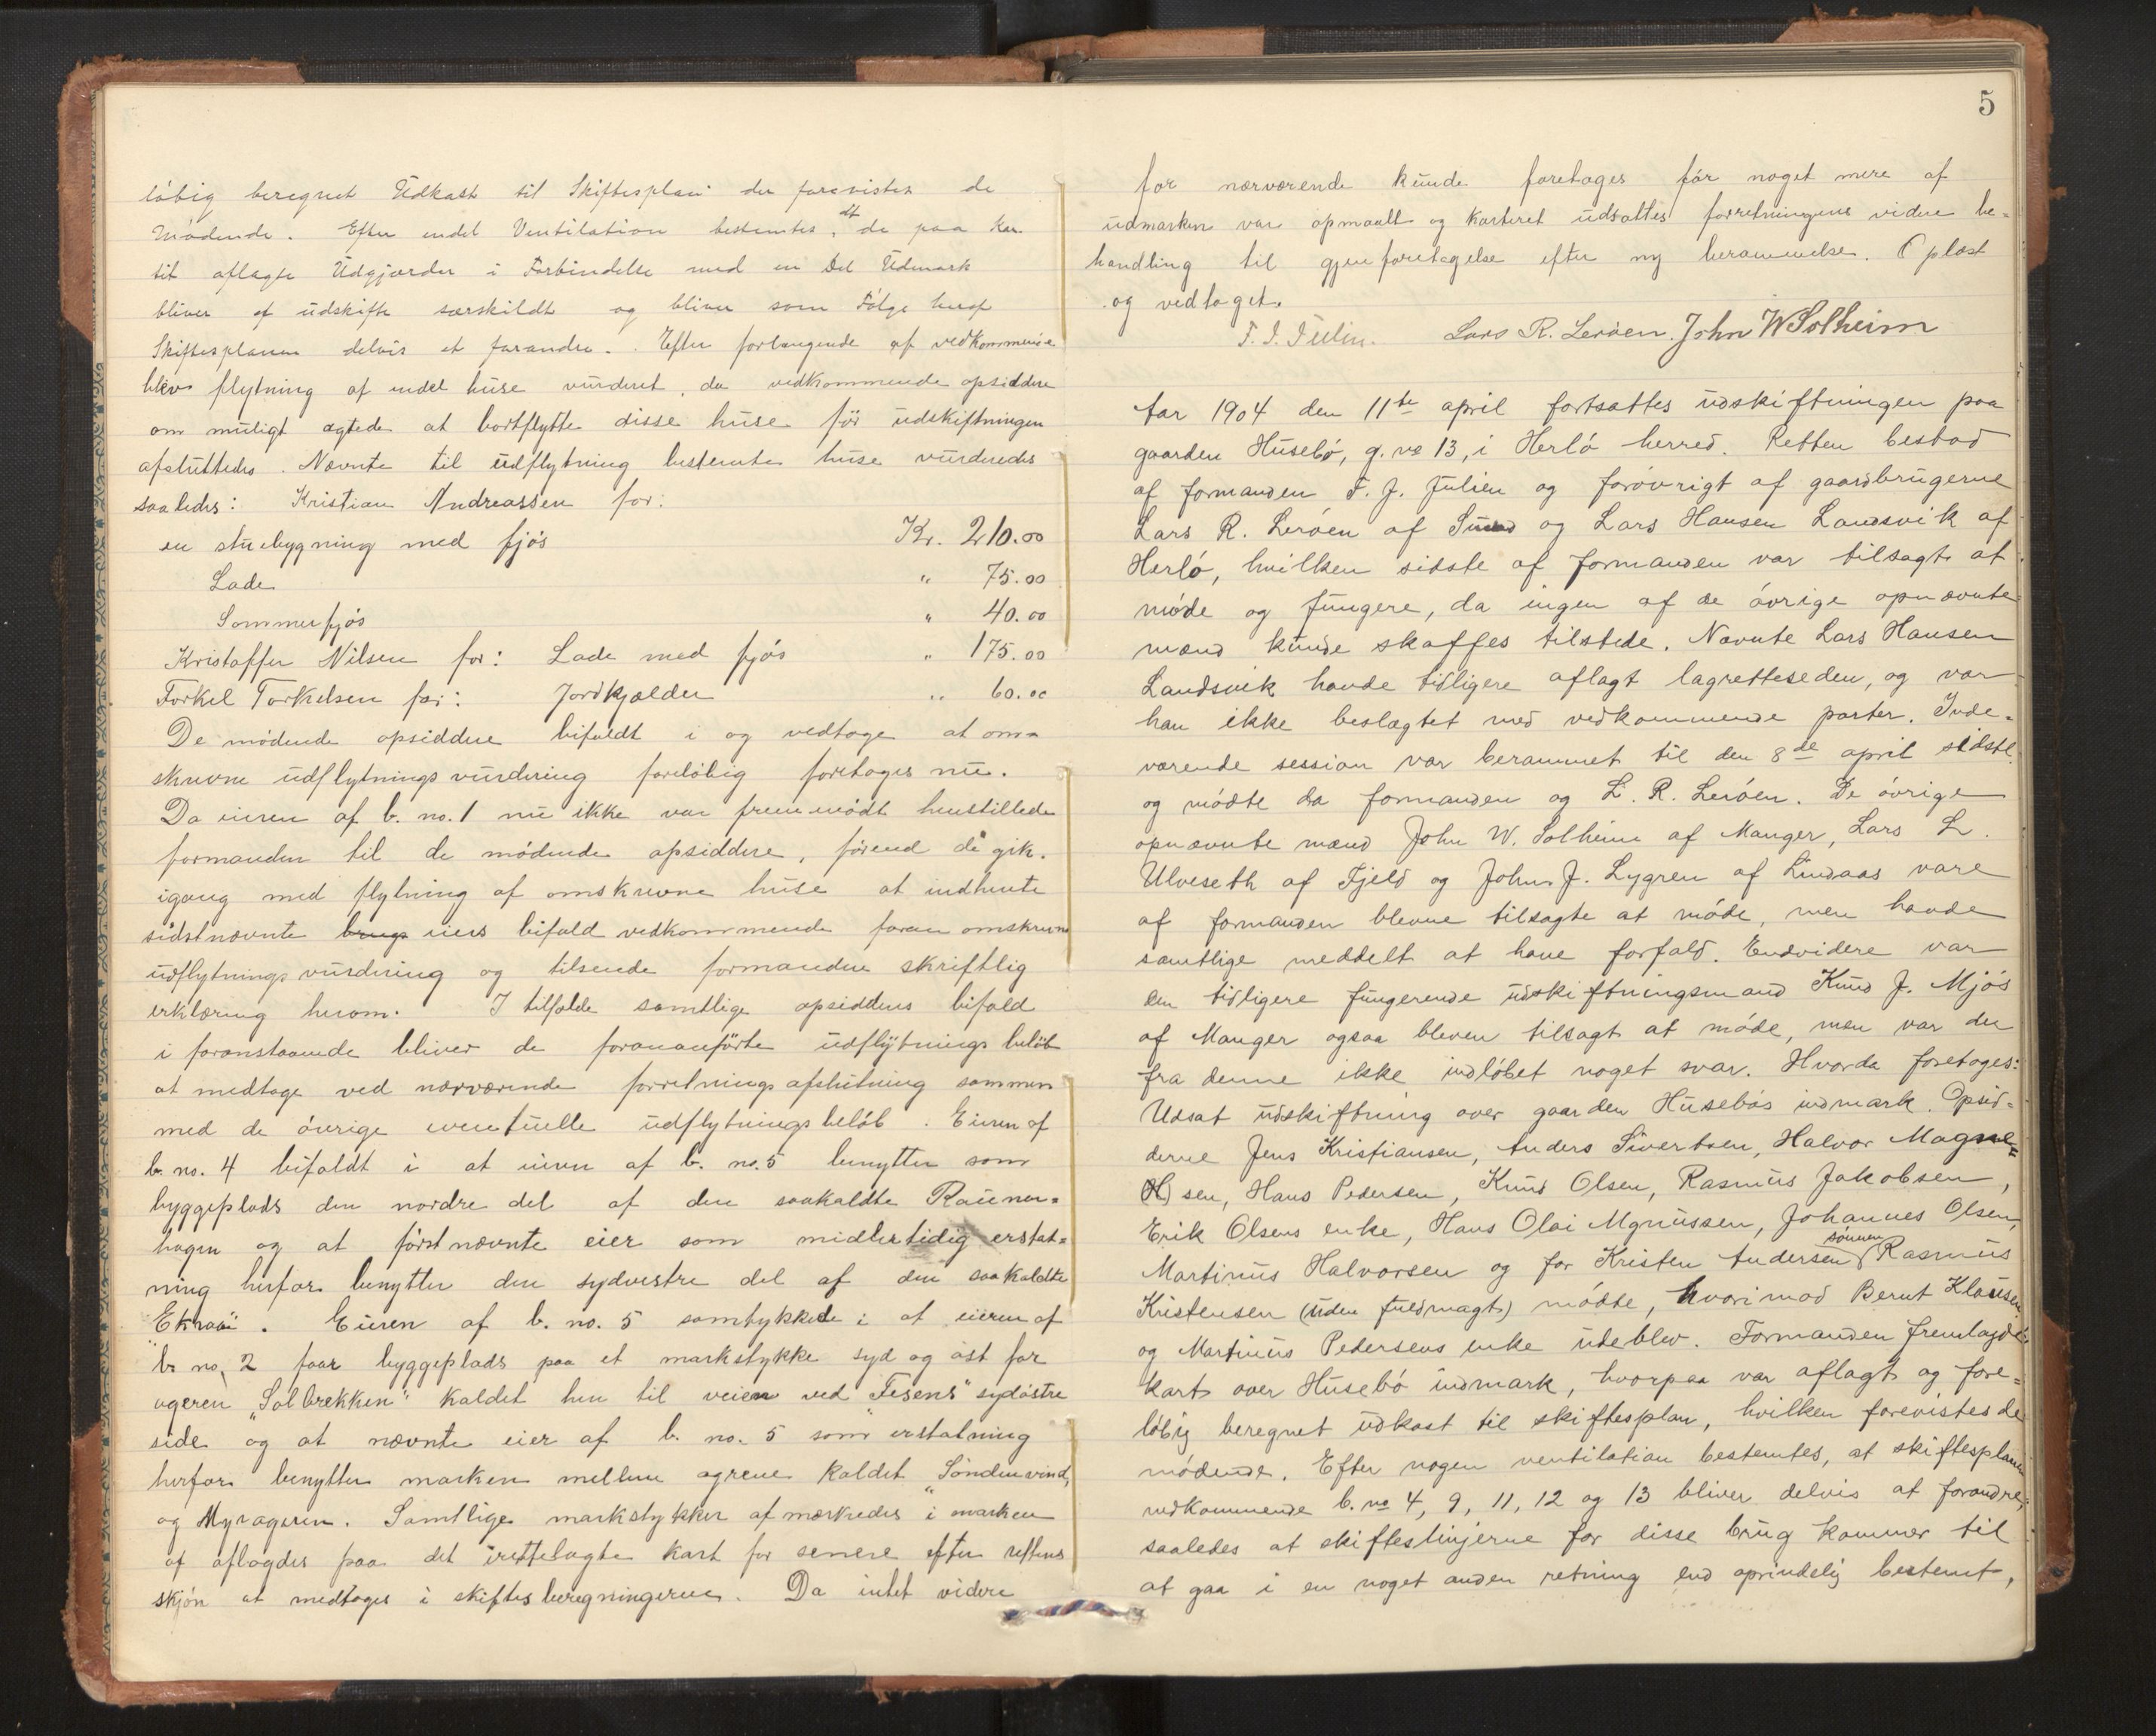 løbig beregnet Udkast til Skiftesplan der forevistes de
mødende. Efter endel Ventilation bestemtes, at de paa Kar-
tit aflagte Udgjorder i Forbindelse med en Del Udmark
bliver at udskifte særskildt og bliver som Følge heraf
Skiftesplanen delvis at forandre. Efter forlangende af vedkommende
blev flytning af endel huse vurderet, da vedkommende opsiddere
om muligt agtede at bortflytte disse huse før udskiftningen
afsluttedes. Nævnte til udflytning bestemte huse vurderedes
saaledes: Kristian Andreassen for:
en stuebygning med fjøs Kr. 210.00
Lade " 75.00
Sommerfjøs " 40.00
Kristoffer Nilsen for: Lade med fjøs " 175.00
Torkel Torkelsen for: Jordkjælder " 60.00
De mødende opsiddere bifaldt i og vedtoge at om-
skrevne udflytningsvurdering foreløbig foretages nu.
Da eieren af b. no. 1 nu ikke var fremmødt henstillede
formanden til de mødende opsiddere, førend de gik
igang med flytning af omskrevne huse at indhente
sidstnævnte brugs eiers bifald vedkommende foran omskrevne
udflytningsvurdering og tilsende formanden skriftlig
erklæring herom. I tilfælde samtlige opsidderes bifald
i foranstaaende bliver de forananførte udflytningsbeløb
at medtage ved nærværende forretnings afslutning sammen
med de øvrige eventuelle udflytningsbeløb. Eieren af
b. no. 4 bifaldt i at eieren af b. no. 5 benytter som
byggeplads den nordre del af den saakaldte Raune-
hagen og at førstnævnte eier som midlertidig erstat=
ning herfor benytter den sydvestre del af den saakaldte
"Ekraa". Eieren af b. no. 5 samtykkede i at eieren af
b. no. 2 faar byggeplads paa et markstykke syd og øst for
ageren "Solbrekken" kaldet hen til veien ved "Tesens" sydøstre
side og at nævnte eier af b. no. 5 som erstatning
herfor benytter marken mellem agrene kaldet "Søndenvind"
og Myrageren. Samtlige markstykker afmærkedes i marken
og aflagdes paa det irettelagte kart for senere efter rettens
skjøn at medtages i skiftesberegningerne. Da intet videre
5
for nærværende kunde foretages før noget mere af
udmarken var opmaalt og karteret udsattes forretningens videre be-
handling til gjenforetagelse efter ny berammelse. Oplæst
og vedtaget.
F. J. Julin. Lars R. Lerøen. John W Solheim
Aar 1904 den 11te april fortsattes udskiftningen paa
gaarden Husebø, g. no 13, i Herlø herred. Retten bestod
af formanden F. J. Julien og forøvrigt af gaardbrugerne
Lars R. Lerøen af Sund og Lars Hansen Landsvik af
Herlø, hvilken sidste af formanden var tilsagt at
møde og fungere, da ingen af de øvrige opnævnte
mænd kunde skaffes tilstede. Nævnte Lars Hansen
Landsvik havde tidligere aflagt lagretteseden, og var
han ikke beslægtet med vedkommende parter. Inde-
værende session var berammet til den 8de april sidstl.
og mødte da formanden og L. R. Lerøen. De øvrige
opnævnte mænd John W. Solheim af Manger, Lars L.
Ulveseth af Fjeld og Johns J. Lygren af Lindaas vare
af formanden blevne tilsagte at møde, men havde
samtlige meddelt at have forfald. Endvidere var
den tidligere fungerende udskiftningsmand Knud J. Mjøs
af Manger ogsaa bleven tilsagt at møde, men var der
fra denne ikke indløbet noget svar. Hvorda foretoges:
Udsat udskiftning over gaarden Husebøs indmark. Opsid=
derne Jens Kristiansen, Anders Sivertsen, Halvor Magne=
sen, Hans Pedersen, Knud Olsen, Rasmus Jakobsen,
Erik Olsens enke, Hans Olai Mgnussen, Johannes Olsen,
Martinus Halvorsen og for Kristen Andersen sønnen Rasmus
Kristensen (uden fuldmagt) mødte, hvorimod Bernt Klausen
og Martinus Pedersens enke udeblev. Formanden fremlagde
kart over Husebø indmark, hvorpaa var aflagt og fore=
løbig beregnet udkast til skiftesplan, hvilken forevistes de
mødende. Efter nogen ventilation bestemtes, at skiftesplanen
vedkommende b. no 4, 9, 11, 12 og 13 bliver delvis at forandre,
saaledes at skifteslinjerne for disse brug kommer til
at gaa i en noget anden retning end oprindelig bestemt,